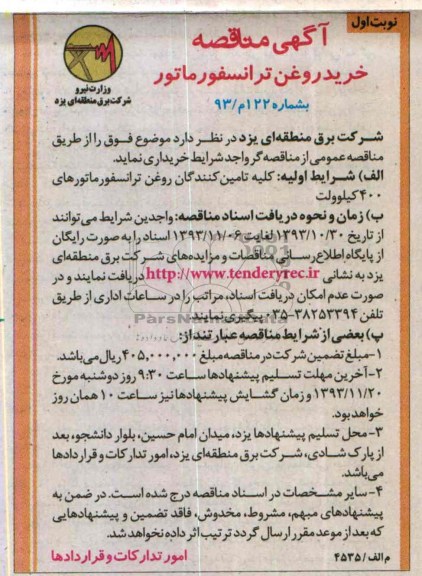 نوبت اول
آگهی مناقصه
خرید روغن ترانسفورماتور
بشماره ۱۲۲م/۹۳
وزارت نیرو
شرکت برق منطقه‌ای یزد
شرکت برق منطقه‌ای یزد در نظر دارد موضوع فوق را از طریق
مناقصه عمومی از مناقصه‌گر واجد شرایط خریداری نماید.
الف) شرایط اولیه: کلیه تامین‌کنندگان روغن ترانسفورماتورهای
۴۰۰ کیلوولت
ب) زمان و نحوه دریافت اسناد مناقصه: واجدین شرایط می‌توانند
از تاریخ ۱۳۹۳/۱۰/۳۰ لغایت ۱۳۹۳/۱۱/۰۶ اسناد را به صورت رایگان
از پایگاه اطلاع رسانی مناقصات و مزایده‌های شرکت برق منطقه‌ای
یزد به نشانی http://www.tenderyrec.ir دریافت نمایند و در
صورت عدم امکان دریافت اسناد، مراتب را در ساعات اداری از طریق
تلفن ۳۸۲۵۳۳۹۴-۰۳۵ پیگیری نمایند.
پ) بعضی از شرایط مناقصه عبارتند از:
۱- مبلغ تضمین شرکت در مناقصه مبلغ ۴۰۵,۰۰۰,۰۰۰ ریال می‌باشد.
۲- آخرین مهلت تسلیم پیشنهادها ساعت ۹:۳۰ روز دوشنبه مورخ
۱۳۹۳/۱۱/۲۰ و زمان گشایش پیشنهادها نیز ساعت ۱۰ همان روز
خواهد بود.
۳- محل تسلیم پیشنهادها یزد، میدان امام حسین، بلوار دانشجو، بعد
از پارک شادی، شرکت برق منطقه‌ای یزد، امور تدارکات و قراردادها
می‌باشد.
۴- سایر مشخصات در اسناد مناقصه درج شده است. در ضمن به
پیشنهادهای مبهم، مشروط، مخدوش، فاقد تضمین و پیشنهادهایی
که بعد از موعد مقرر ارسال گردد ترتیب اثر داده نخواهد شد.
امور تدارکات و قراردادها
م الف/۴۵۳۵